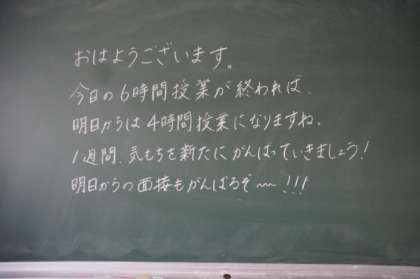 おはようございます。
今日の6時間授業が終われば、
明日からは4時間授業になりますね。
1週間、気もちを新たにがんばっていきましょう!
明日からの面接もがんばるぞ〜!!!